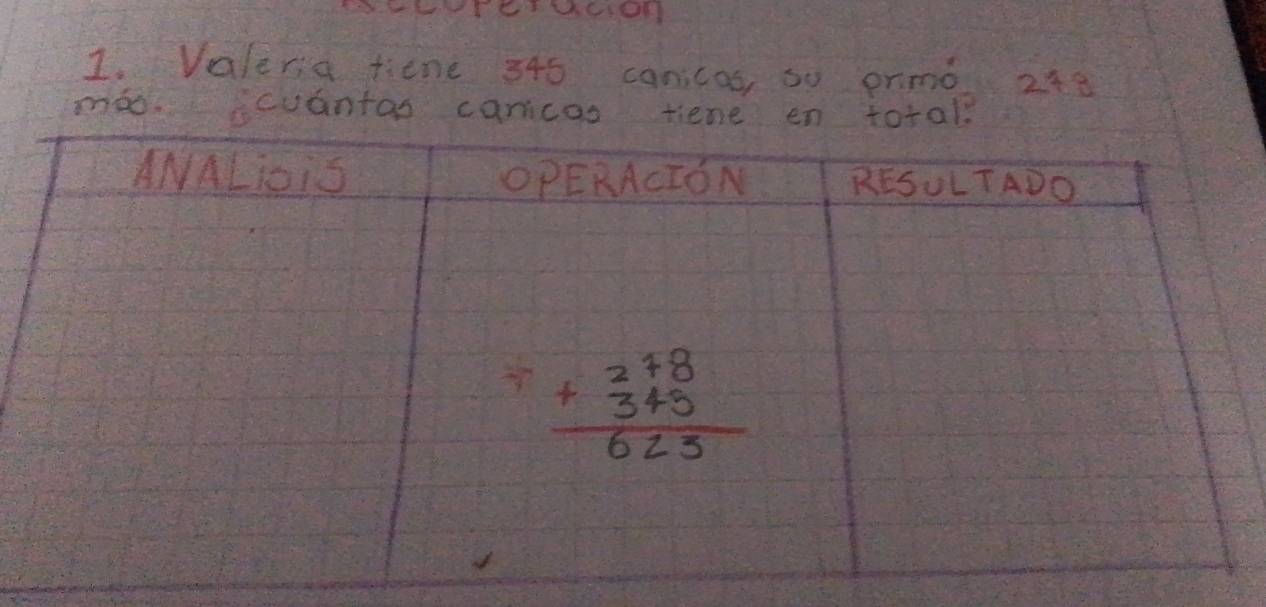 Recuperación
1. Valeria tiene 345 canicas, su primó 278
más. ¿cuántas canicas tiene en total?
ANALiSiS OPERACIÓN RESULTADO
+ 278
+ 345
623